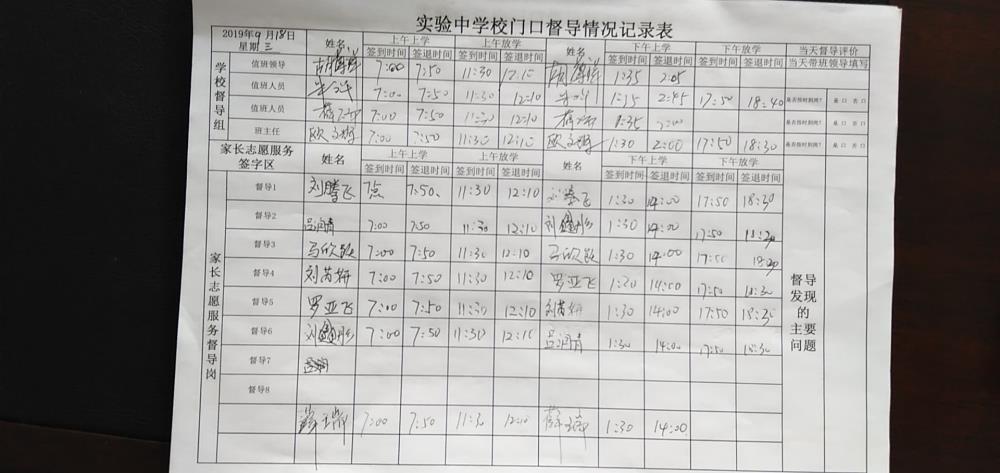 实验中学校门口督导情况记录表
2019年9月18日
星期三
姓名 上午上学 上午放学 姓名 下午上学 下午放学 当天督导评价
签到时间 签退时间 签到时间 签退时间 签到时间 签退时间 签到时间 签退时间 当天带班领导填写
学校督导组
值班领导 7:00 7:50 11:30 12:10 1:35 2:05
值班人员 7:00 7:50 11:30 12:10 2:45 17:50 18:40 是否按时到岗? 是 口 否 口
值班人员 7:00 7:50 11:30 12:10 1:35 是否按时到岗? 是 口 否 口
班主任 欧文娟 7:00 7:50 11:30 12:10 欧文娟 1:30 2:00 17:50 18:30 是否按时到岗? 是 口 否 口
家长志愿服务签字区 姓名 上午上学 上午放学 姓名 下午上学 下午放学
签到时间 签退时间 签到时间 签退时间 签到时间 签退时间 签到时间 签退时间
家长志愿服务督导岗
督导1 刘腾飞 7点 7:50 11:30 12:10 刘腾飞 1:30 14:00 17:50 18:30
督导2 吕润青 7:00 7:50 11:30 12:10 1:30 14:00 17:50 18:30
督导3 马欣凯 7:00 7:50 11:30 12:10 马欣凯 1:30 14:00 17:50 18:30
督导4 刘芮妍 7:00 7:50 11:30 12:10 罗亚飞 1:30 14:00 17:50 18:30
督导5 罗亚飞 7:00 7:50 11:30 12:10 刘芮妍 1:30 14:00 17:50 18:30
督导6 7:00 7:50 11:30 12:10 吕润青 1:30 14:00 17:50 18:30
督导7
督导8
7:00 7:50 11:30 12:10 1:30 14:00
督导发现的主要问题